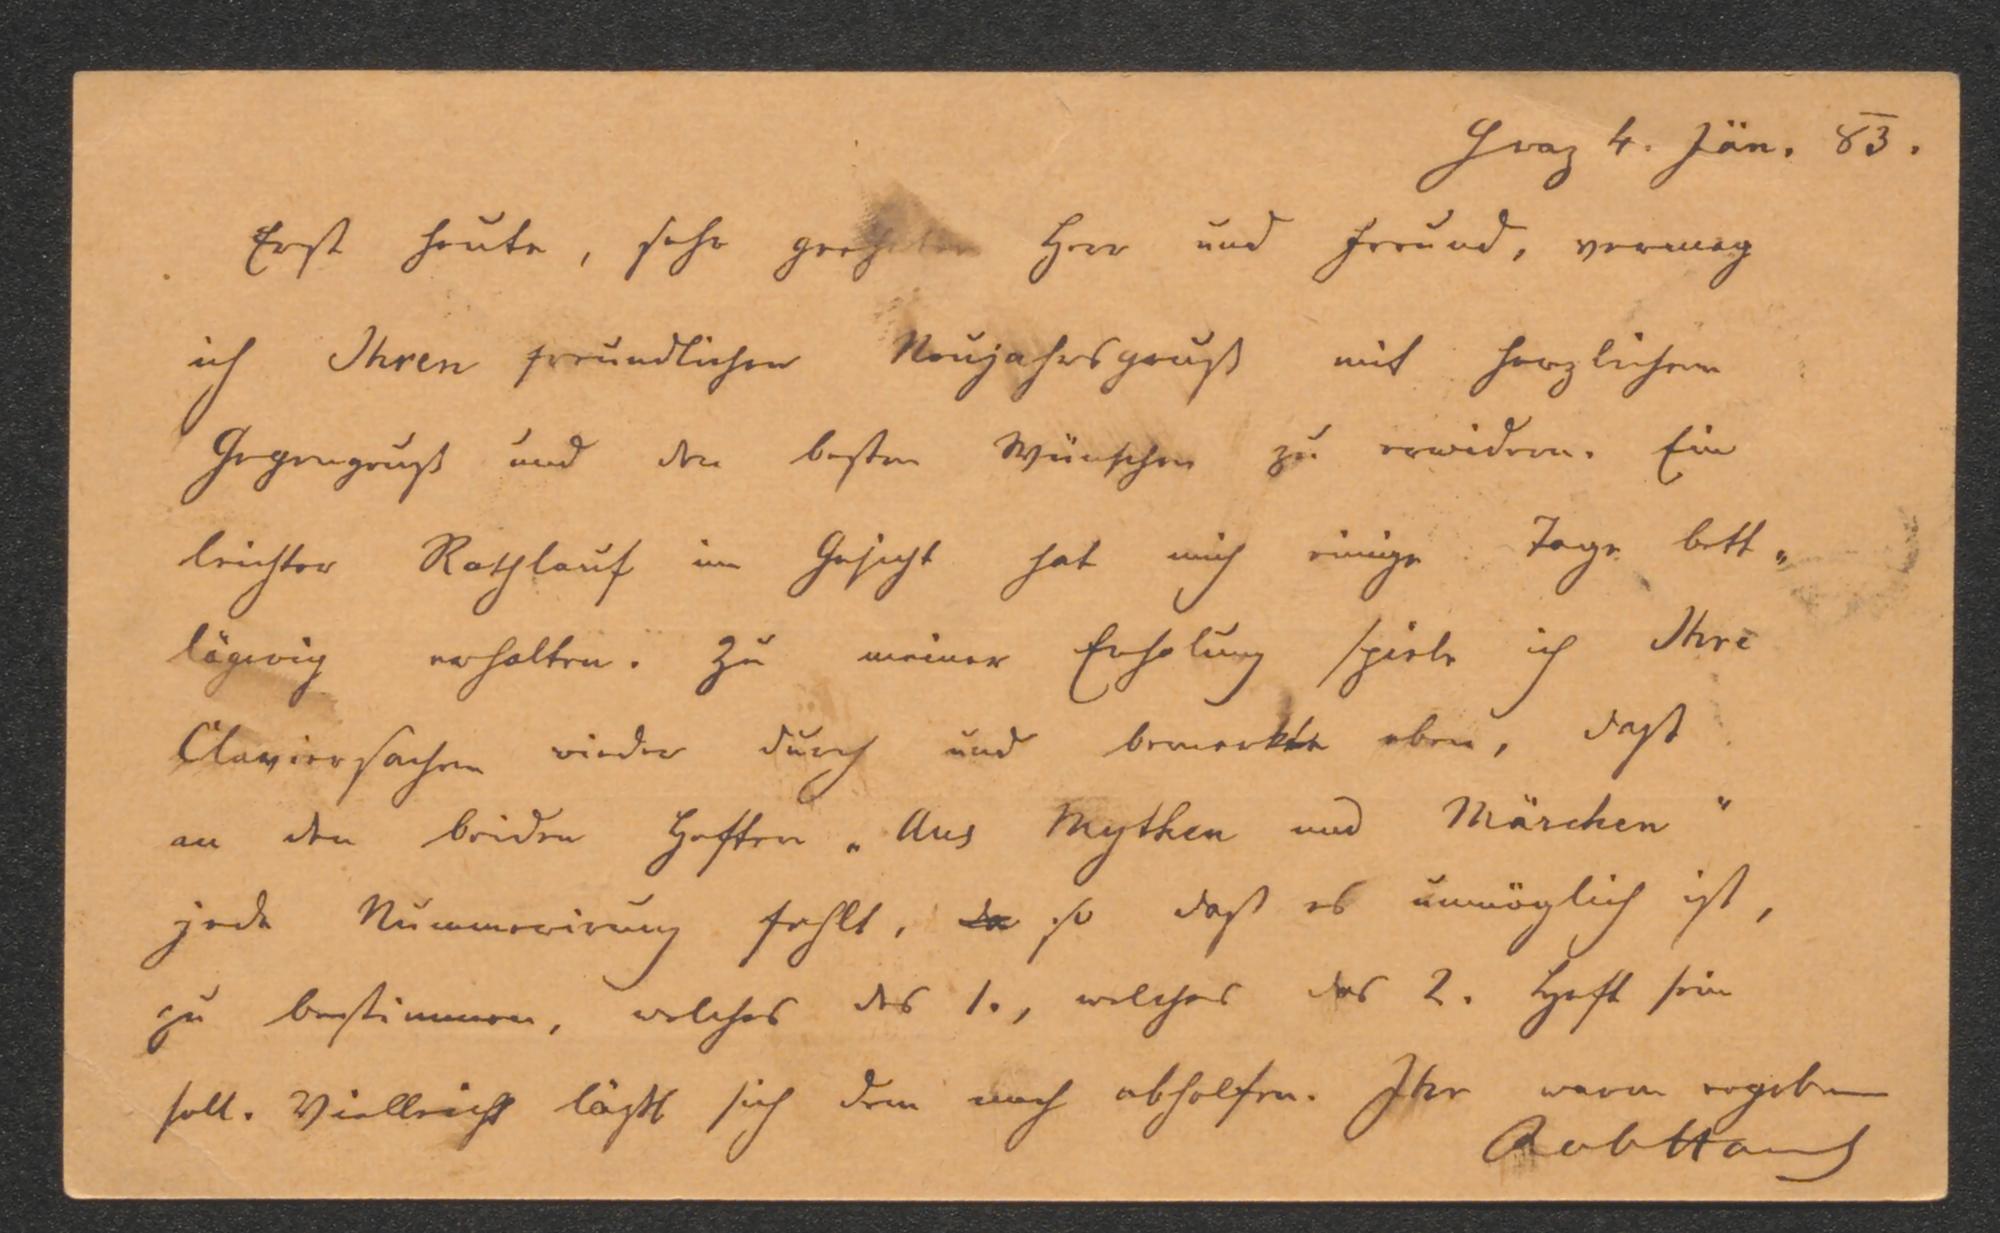 Graz 4. Jän. 83.
Erst heute, sehr geehrter Herr und Freund, vermag
ich Ihren freundlichen Neujahrsgruß mit herzlichem
Gegengruß und den besten Wünschen zu erwidern. Ein
leichter Rothlauf im Gesicht hat mich einige Tage bett„
lägerig erhalten. Zu meiner Erholung spiele ich Ihre
Claviersachen wieder durch und bemerkte eben, daß
an den beiden Heften „Aus Mythen und Märchen“
jede Nummerirung fehlt, so daß es unmöglich ist,
zu bestimmen, welches das 1., welches das 2. Heft sein
soll. Vielleicht läßt sich dem noch abhelfen. Ihr warm ergebener